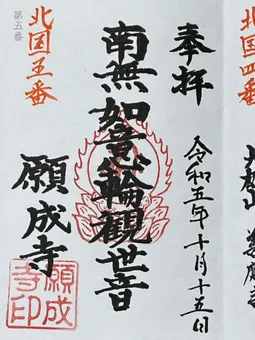 北国四番
奉拝
令和五年十月十五日
南無如意輪觀世音
願成寺
第五番
北国五番
願成寺印